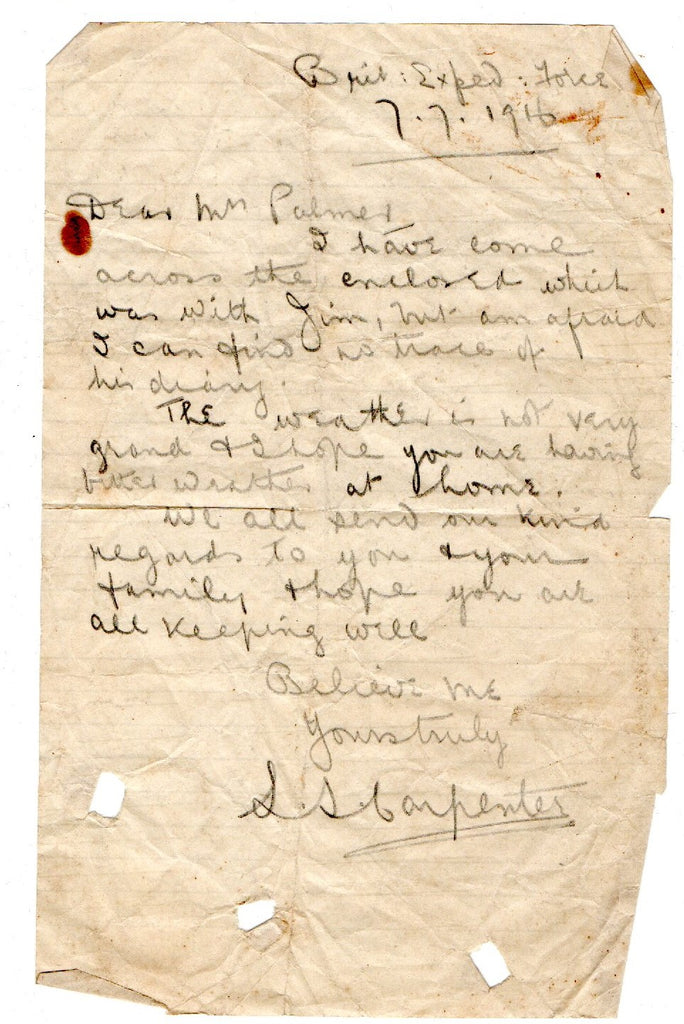 Brit: Exped: Force
7.7.1916
Dear Mrs Palmer
I have come
across the enclosed which
was with Jim, but am afraid
I can find no trace of
his diary.
The weather is not very
grand & I hope you are having
better weather at home.
We all send our kind
regards to you & your
family & hope you are
all keeping well
Believe me
Yours truly
S. S. Carpenter